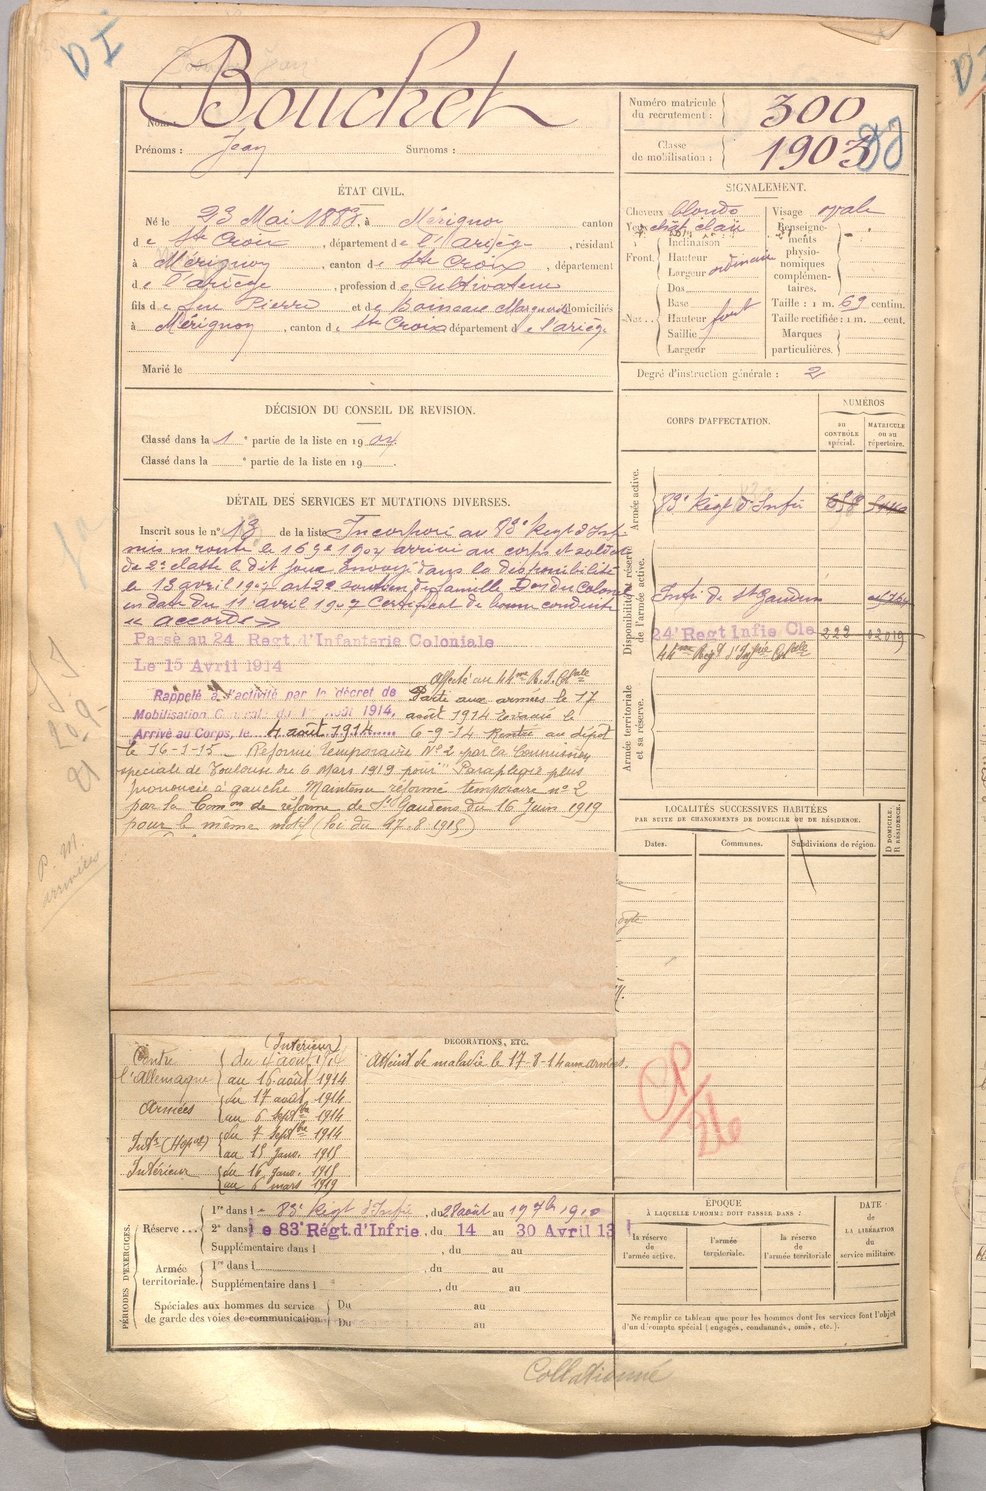 DI
Bouchet
Nom :
Prénoms : Jean Surnoms :
Numéro matricule du recrutement : 300
Classe de mobilisation : 1903
ÉTAT CIVIL.
Né le 23 Mai 1883, à Mérignon canton
de Ste Croix, département de l'Ariège, résidant
à Mérignon, canton de Ste Croix, département
de l'ariège, profession de Cultivateur
fils de feu Pierre et de Marguerite domiciliés
à Mérignon, canton de Ste Croix département de l'ariège
Marié le
SIGNALEMENT.
Cheveux blonds
Yeux chât clair
Front. Inclinaison
Hauteur
Largeur ordinaire
Nez. Dos
Base
Hauteur fort
Saillie
Largeur
Visage ovale
Renseignements physionomiques complémentaires.
Taille : 1 m. 69 centim.
Taille rectifiée : 1 m. cent.
Marques particulières.
Degré d'instruction générale : 2
DÉCISION DU CONSEIL DE REVISION.
Classé dans la 1e partie de la liste en 1904.
Classé dans la e partie de la liste en 19 .
DÉTAIL DES SERVICES ET MUTATIONS DIVERSES.
Inscrit sous le n° 13 de la liste Incorporé au 83e Regt d'Inf
mis en route le 16 9e 1904 arrivé au corps et soldat
de 2e classe le dit jour Envoyé dans la disponibilité
le 13 avril 1907 art 22 soutien de famille Don du Colonel
en date du 11 avril 1907 Certificat de bonne conduite
"accordé"
Passé au 24 Regt. d'Infanterie Coloniale
Le 15 Avril 1914
Affecté au 44me R.I.Cale
Rappelé à l'activité par le décret de
Mobilisation Générale du 1er août 1914.
Arrivé au Corps, le 4 août 1914
Parti aux armées le 17
août 1914 Evacué le
6-9-14 Rentré au dépôt
le 16-1-15 _ Réformé temporaire N° 2 par la Commission
spéciale de Toulouse du 6 Mars 1919 pour "Paraplégie plus
prononcée à gauche Maintenu réformé temporaire n° 2
par la Comon de réforme de St Gaudens du 16 Juin 1919
pour le même motif (loi du 17.8.1915)
CORPS D'AFFECTATION.
NUMÉROS
au CONTRÔLE spécial.
MATRICULE ou au répertoire.
Armée active.
83e Régt d'Infie
Disponibilité et réserve de l'armée active.
Infie de St Gaudens
24e Regt Infie Cle 222 02019
44me Régt d'Infie Colale
Armée territoriale et sa réserve.
LOCALITÉS SUCCESSIVES HABITÉES
PAR SUITE DE CHANGEMENTS DE DOMICILE OU DE RÉSIDENCE.
Dates.
Communes.
Subdivisions de région.
D DOMICILE. R RÉSIDENCE.
(Intérieur)
Contre l'Allemagne
du 4 août 1914
au 16 août 1914
Armées
du 17 août 1914
au 6 Septbre 1914
Intr (Hôpal)
du 7 Septbre 1914
au 15 Janv. 1915
Intérieur
du 16 Janv. 1915
au 6 mars 1919
DÉCORATIONS, ETC.
Atteint de maladie le 17-8-14 aux armées.
PÉRIODES D'EXERCICES.
Réserve...
1re dans le 83e Régt d'Infie, du 28 août au 19 7bre 1910
2e dans le 83e Régt. d'Infrie, du 14 au 30 Avril 13
Supplémentaire dans l , du au
Armée territoriale.
1re dans l , du au
Supplémentaire dans l , du au
Spéciales aux hommes du service de garde des voies de communication
Du au
Du au
ÉPOQUE
À LAQUELLE L'HOMME DOIT PASSER DANS :
la réserve de l'armée active.
l'armée territoriale.
la réserve de l'armée territoriale
DATE de LA LIBÉRATION du service militaire.
Ne remplir ce tableau que pour les hommes dont les services font l'objet
d'un décompte spécial (engagés, condamnés, omis, etc.).
Collationné